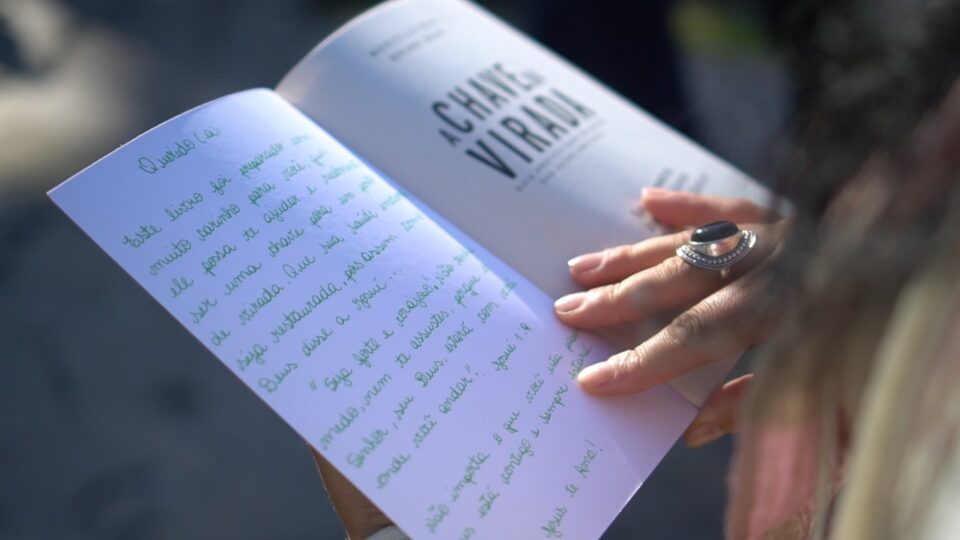 Querido (a)
Este livro foi preparado com
muito carinho para você, que
ele possa te ajudar e
ser uma chave para um
de virada. Que sua saúde
seja restaurada, pos assim com
Deus disse a Josue
"Seja forte e corajoso, não
medo, nem te assustes, porque
Senhor, seu Deus, estará com
onde você andar". Josué 1.9
não importa o que você está
Deus está contigo e sempre
Jesus te Ama!
A CHAVE DA
VIRADA